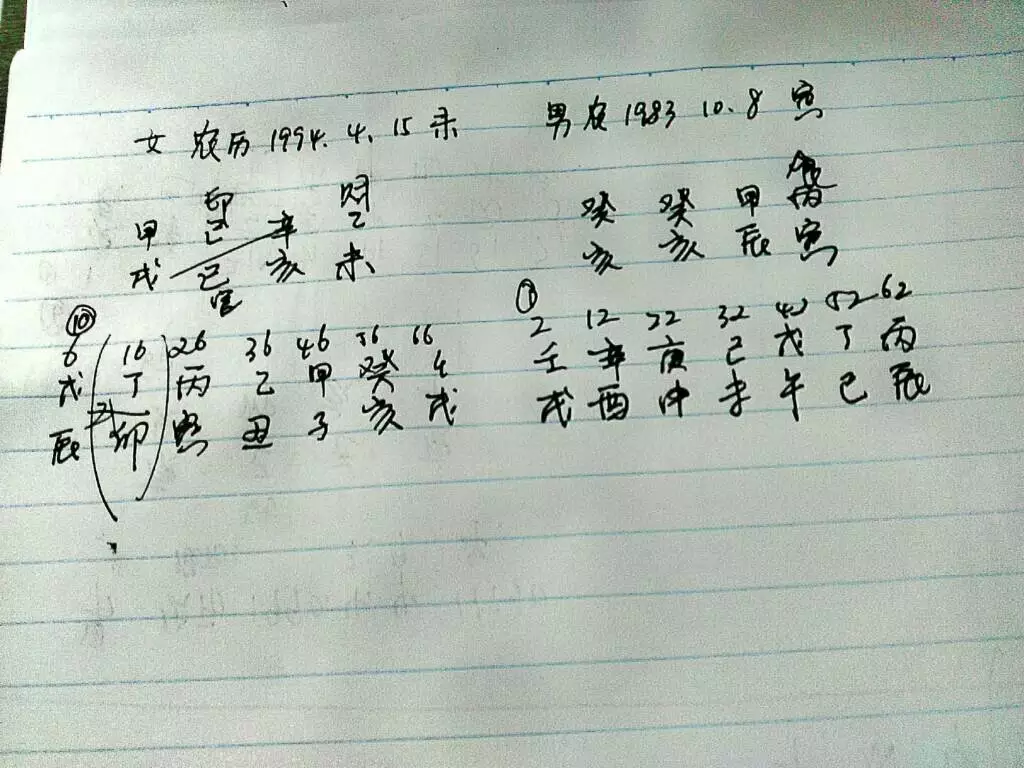 女 农历 1994. 4. 15 未 男 农 1983 10. 8 寅
印 财
甲 己 辛 乙 癸 癸 甲 丙
戌 巳 亥 未 亥 亥 辰 寅
官
⑩ ①
6 16 26 36 46 56 66 2 12 22 32 42 52 62
戊 丁 丙 乙 甲 癸 壬 壬 辛 庚 己 戊 丁 丙
辰 卯 寅 丑 子 亥 戌 戌 酉 申 未 午 巳 辰